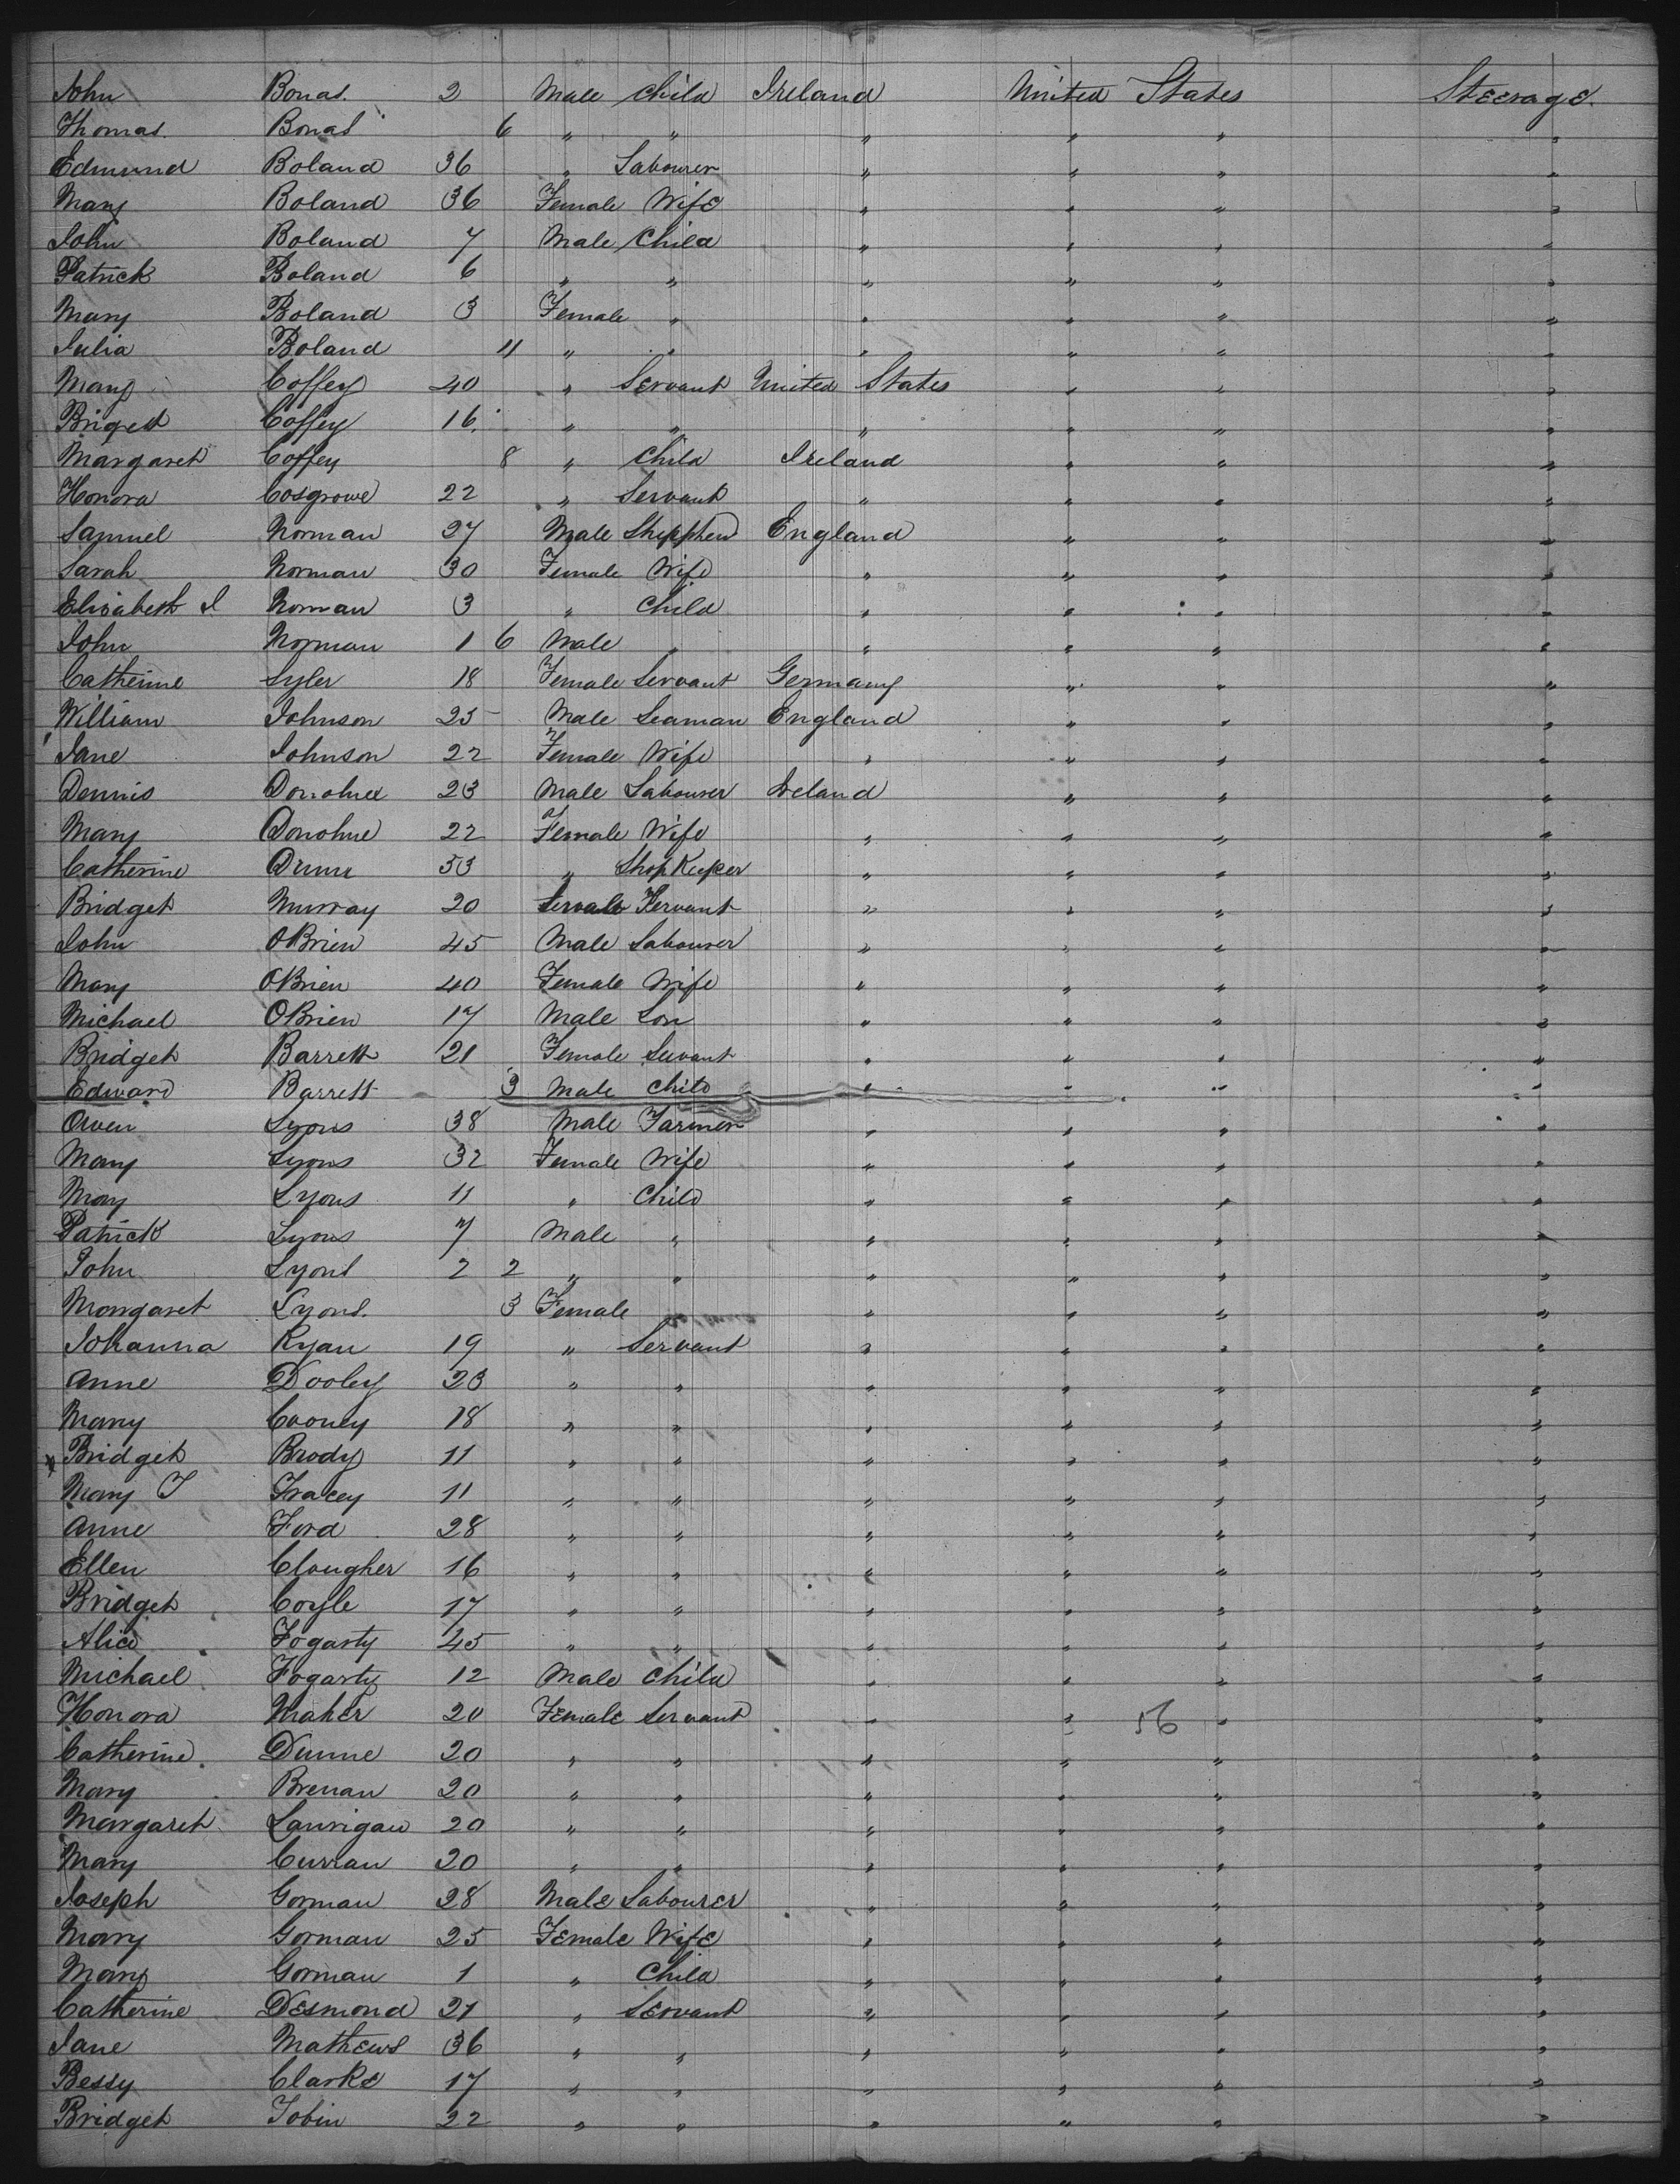 John Bonas. 2 Male Child Ireland United States Steerage.
Thomas. Bonas 6 " " " " " "
Edmund Boland 36 " Labourer " " " "
Mary Boland 36 Female Wife " " " "
John Boland 7 Male Child " " " "
Patrick Boland 6 " " " " " "
Mary Boland 3 Female " " " " "
Julia Boland 11 " " " " " "
Mary Coffey 40 " Servant United States " " "
Briget Coffey 16 " " " " " "
Margaret Coffey 8 " Child Ireland " " "
Honora Cosgrowe 22 " Servant " " " "
Samuel Norman 27 Male Shepphend England " " "
Sarah Norman 30 Female Wife " " " "
Elizabeth I Norman 3 " Child " " " "
John Norman 1 6 Male " " " " "
Catherine Syler 18 Female Servant Germany " " "
William Johnson 25 Male Seaman England " " "
Jane Johnson 22 Female Wife " " " "
Dennis Donohue 23 Male Labourer Ireland " " "
Mary Donohue 22 Female Wife " " " "
Catherine Dunn 53 " Shop Keeper " " " "
Bridget Murray 20 Servant " " " "
John OBrien 45 Male Labourer " " " "
Mary OBrien 40 Female Wife " " " "
Michael OBrien 17 Male Son " " " "
Bridget Barrett 21 Female Servant " " " "
Edward Barrett 3 Male Child " " " "
Owen Lyons 38 Male Farmer " " " "
Mary Lyons 32 Female Wife " " " "
May Lyons 11 " Child " " " "
Patrick Lyons 7 Male " " " " "
John Lyons 2 2 " " " " " "
Margaret Lyons. 3 Female " " " "
Johanna Ryan 19 " Servant " " " "
Anne Dooley 23 " " " " " "
Mary Cooney 18 " " " " " "
x Bridget Brody 11 " " " " " "
Mary T Tracey 11 " " " " " "
Anne Ford 28 " " " " " "
Ellen Clougher 16 " " " " " "
Bridget Coyle 17 " " " " " "
Alice Fogarty 45 " " " " " "
Michael Fogarty 12 Male Child " " " "
Honora Maher 20 Female Servant " " 56 " "
Catherine Dunne 20 " " " " " "
Mary Brenan 20 " " " " " "
Margaret Lanrigan 20 " " " " " "
Mary Curran 20 " " " " " "
Joseph Gorman 28 Male Labourer " " " "
Mary Gorman 25 Female Wife " " " "
Mary Gorman 1 " Child " " " "
Catherine Desmond 21 " Servant " " " "
Jane Mathews 36 " " " " " "
Bessy Clarke 17 " " " " " "
Bridget Tobin 22 " " " " " "